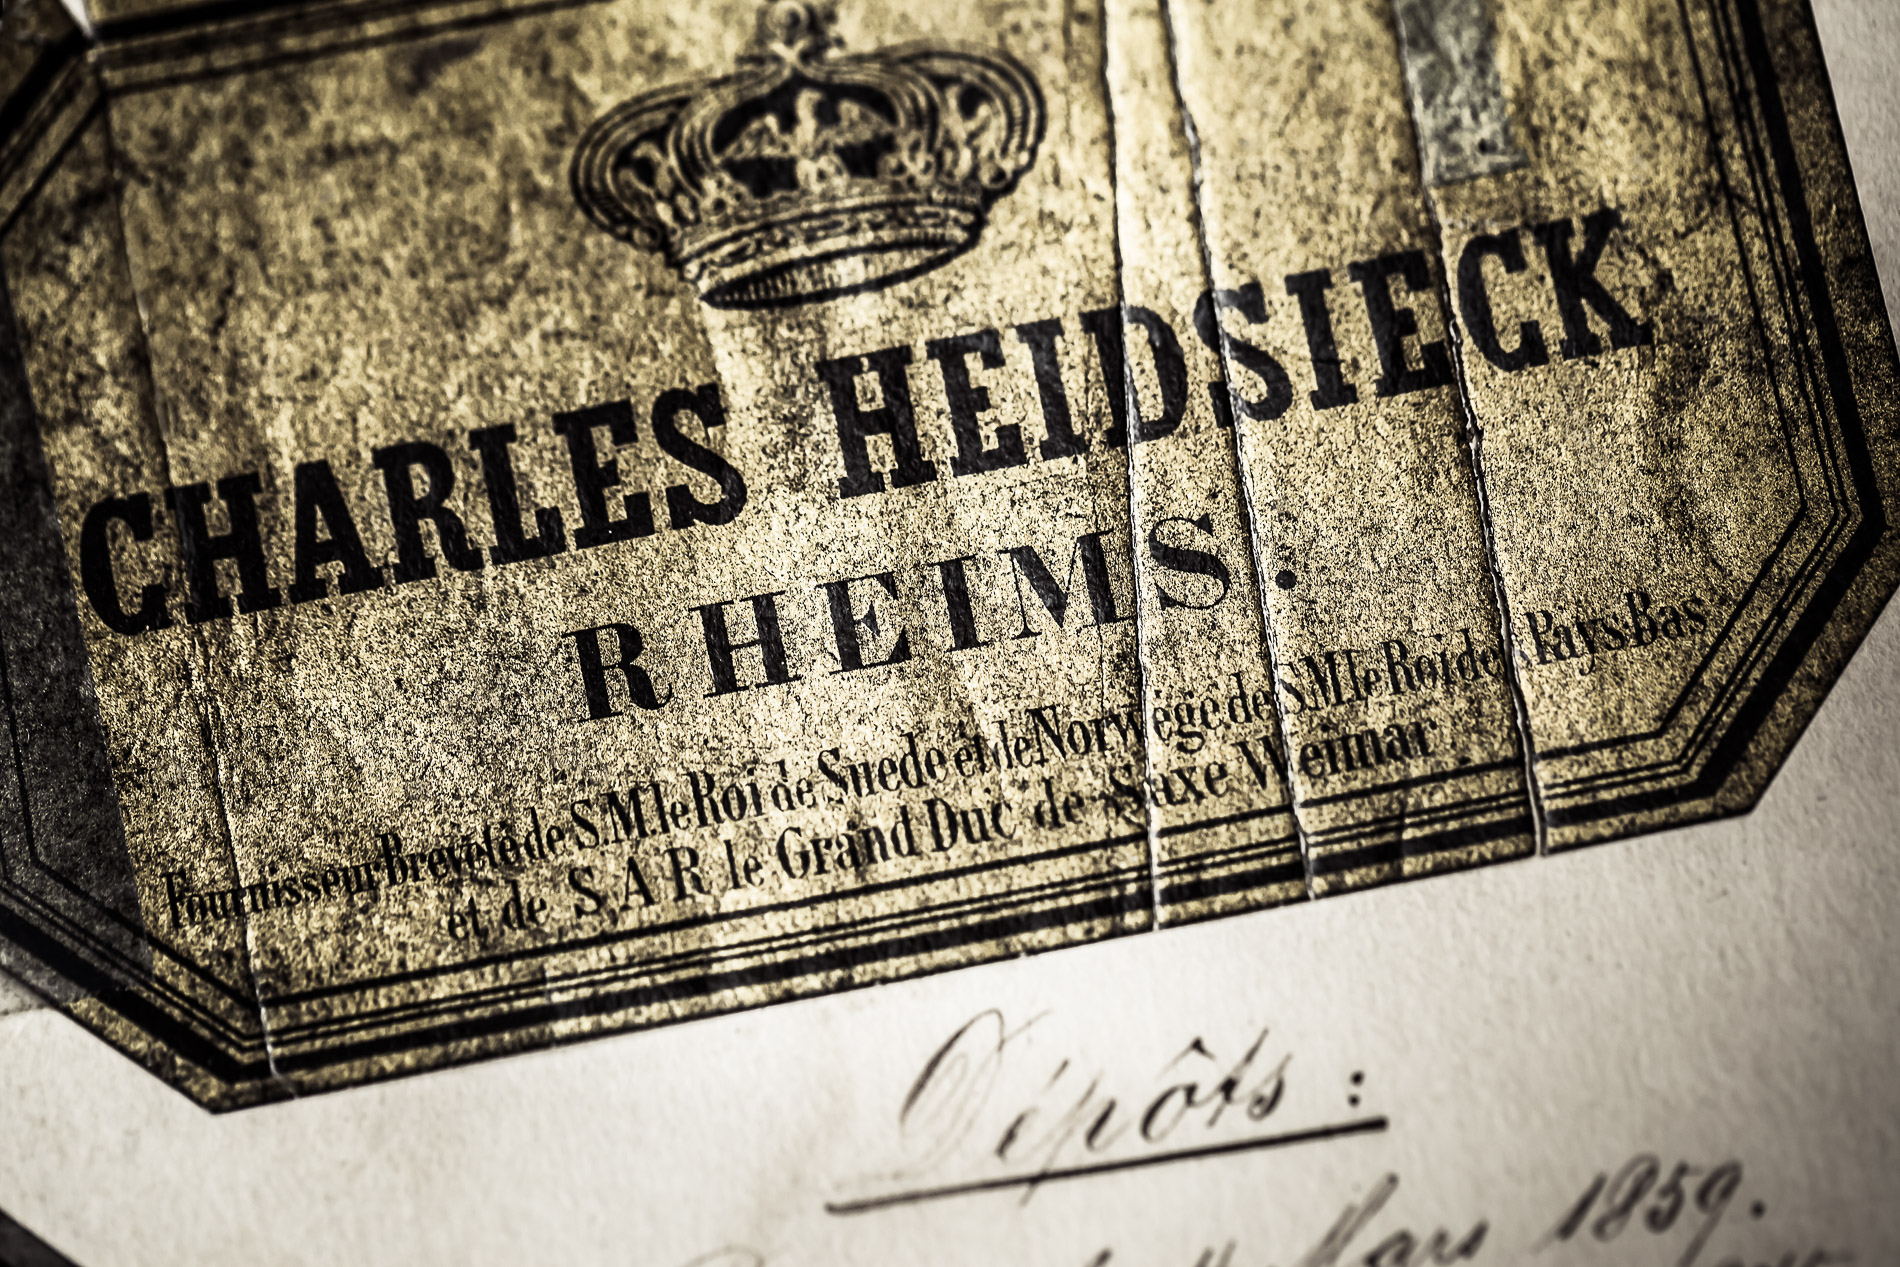 CHARLES HEIDSIECK
RHEIMS.
Fournisseur Breveté de S.M. le Roi de Suede et de Norwége de S.M. le Roi des Pays-Bas
et de S.A.R le Grand Duc de Saxe Weimar
Dépôts :
Mars 1859.